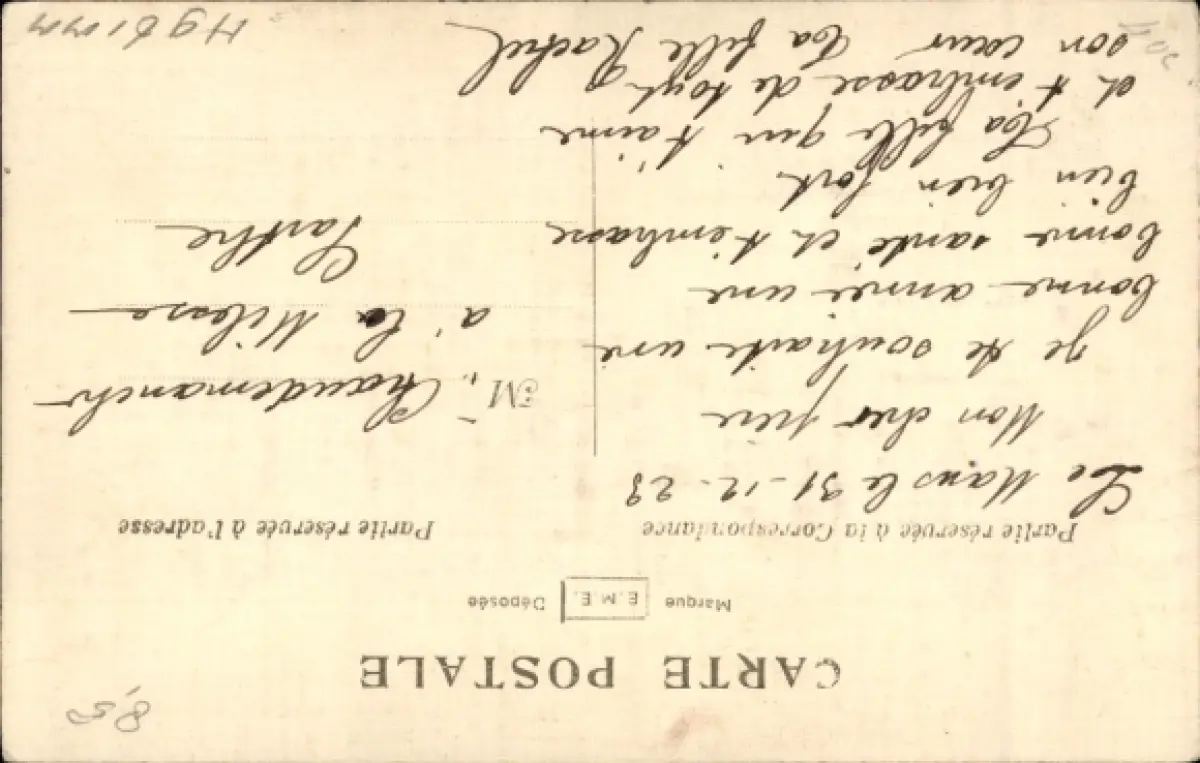 CARTE POSTALE
Marque E.M.E. Déposée
Partie réservée à la Correspondance
Le Mans le 31-12-23
Mon cher père
Je te souhaite une
bonne année une
bonne santé et t'embrasse
bien bien fort
Ta fille qui t'aime
et t'embrasse de tout
son cœur Ta fille Rachel
Partie réservée à l'adresse
M. Chaudemanche
à la Milesse
Sarthe
8,50